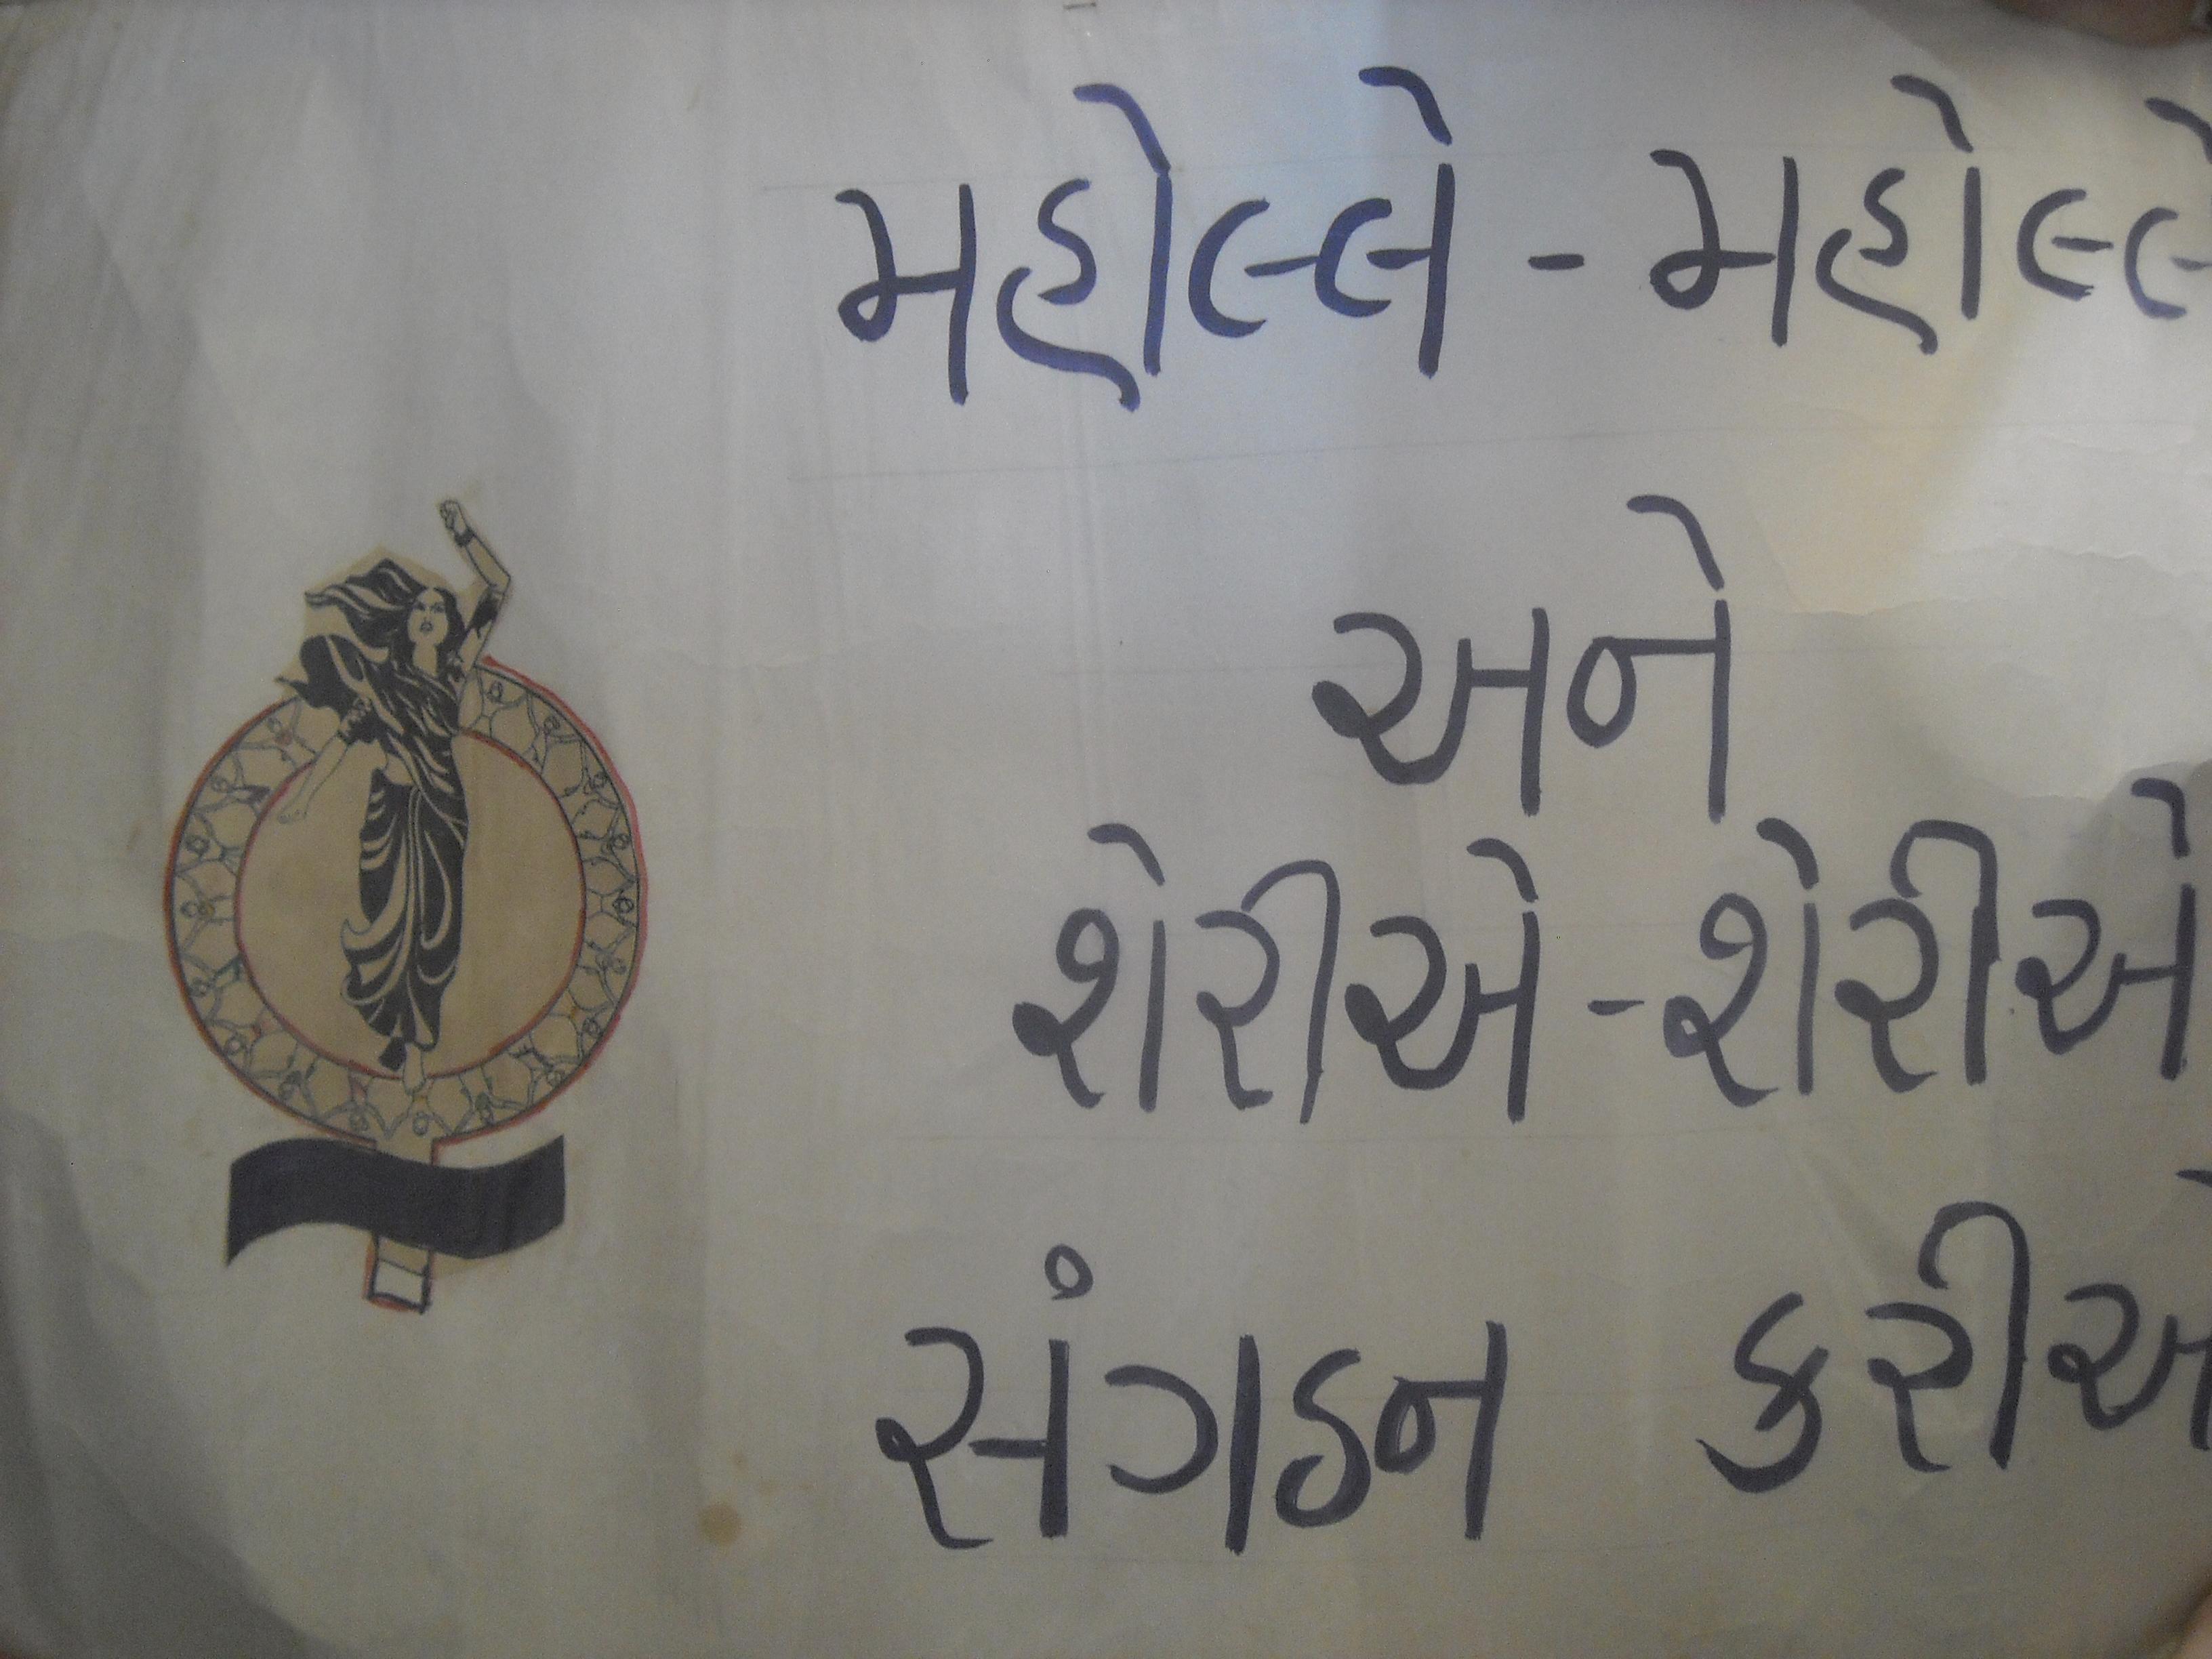 મહોલ્લે - મહોલ્લે
અને
શેરીએ - શેરીએ
સંગઠન કરીએ